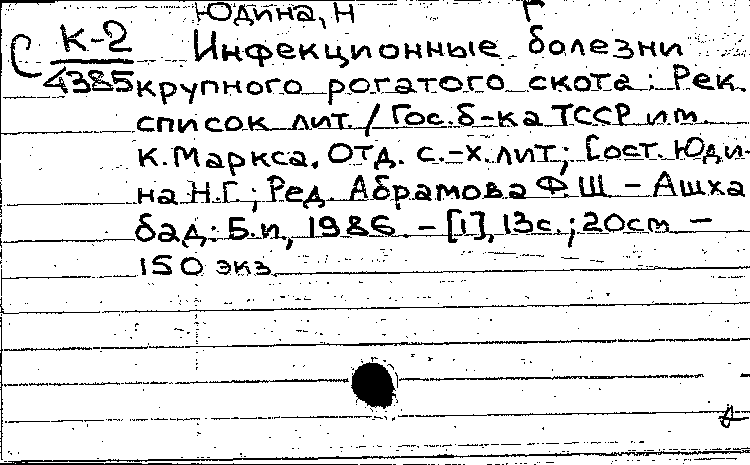 Юдина, Н Г
С К-2 Инфекционные болезни
4385 крупного рогатого скота: Рек.
список лит. / Гос. б-ка ТССР им.
К. Маркса, Отд. с.-х. лит; Сост. Юди-
на Н.Г.; Ред. Абрамова Ф.Ш - Ашха
бад: Б.и., 1986. - [1], 13с.; 20см -
150 экз.